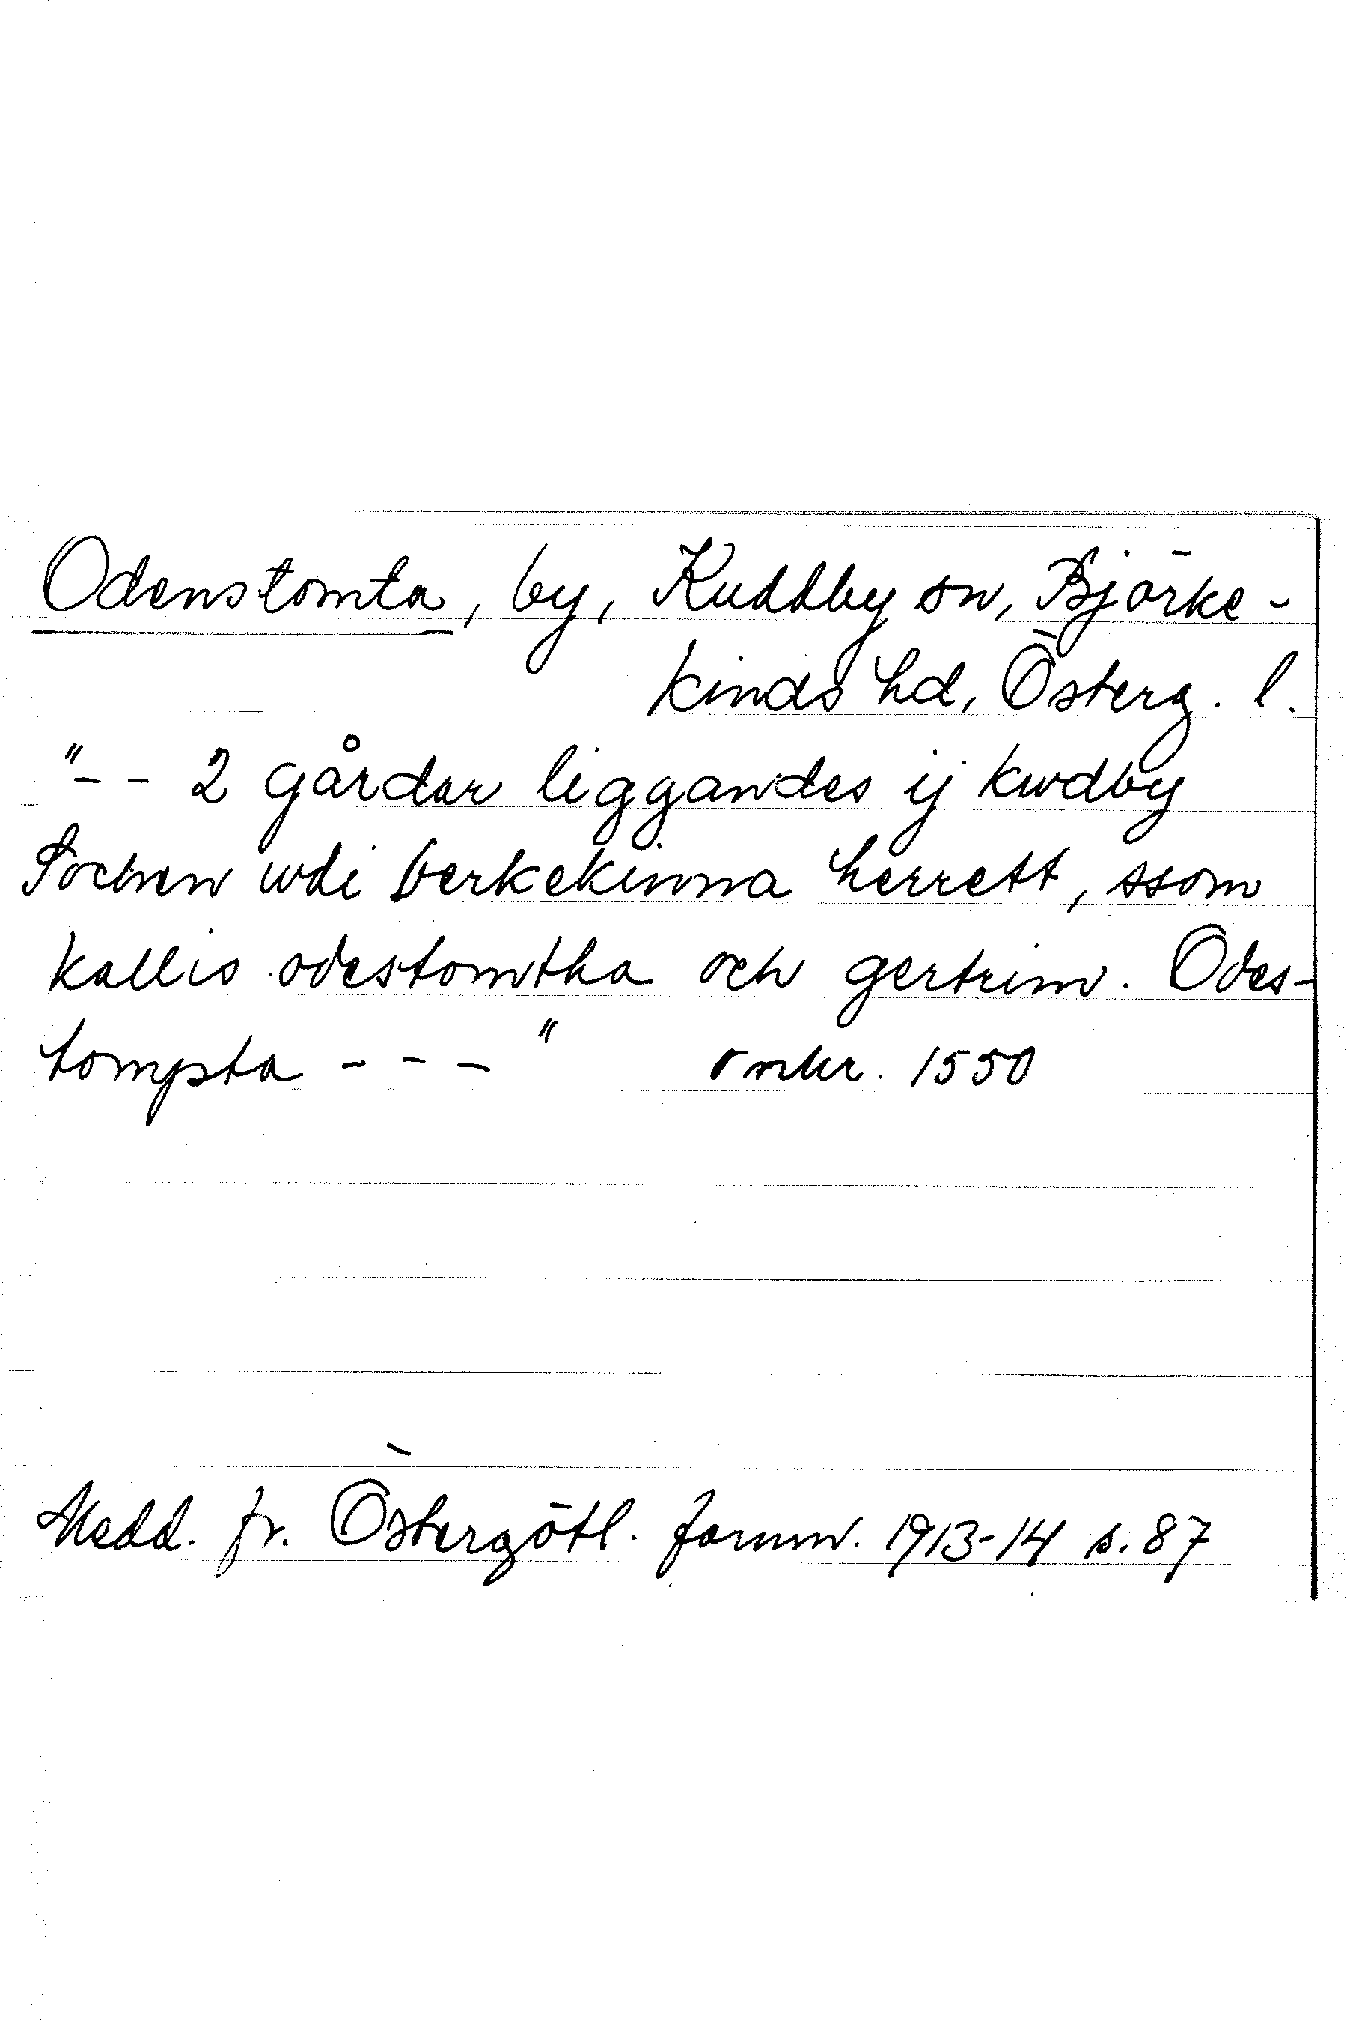 Odenstomta, by, Kuddby sn, Björke-
kinds hd, Österg. l.
"-- 2 gårdar liggandes ij kwdby
Sochen wdi berkekinna herrett, ssom
kallis odestomtha och gertrim. Odes-
tompta --- " omkr. 1550
Medd. fr. Östergötl. fornm. 1913-14 s. 87